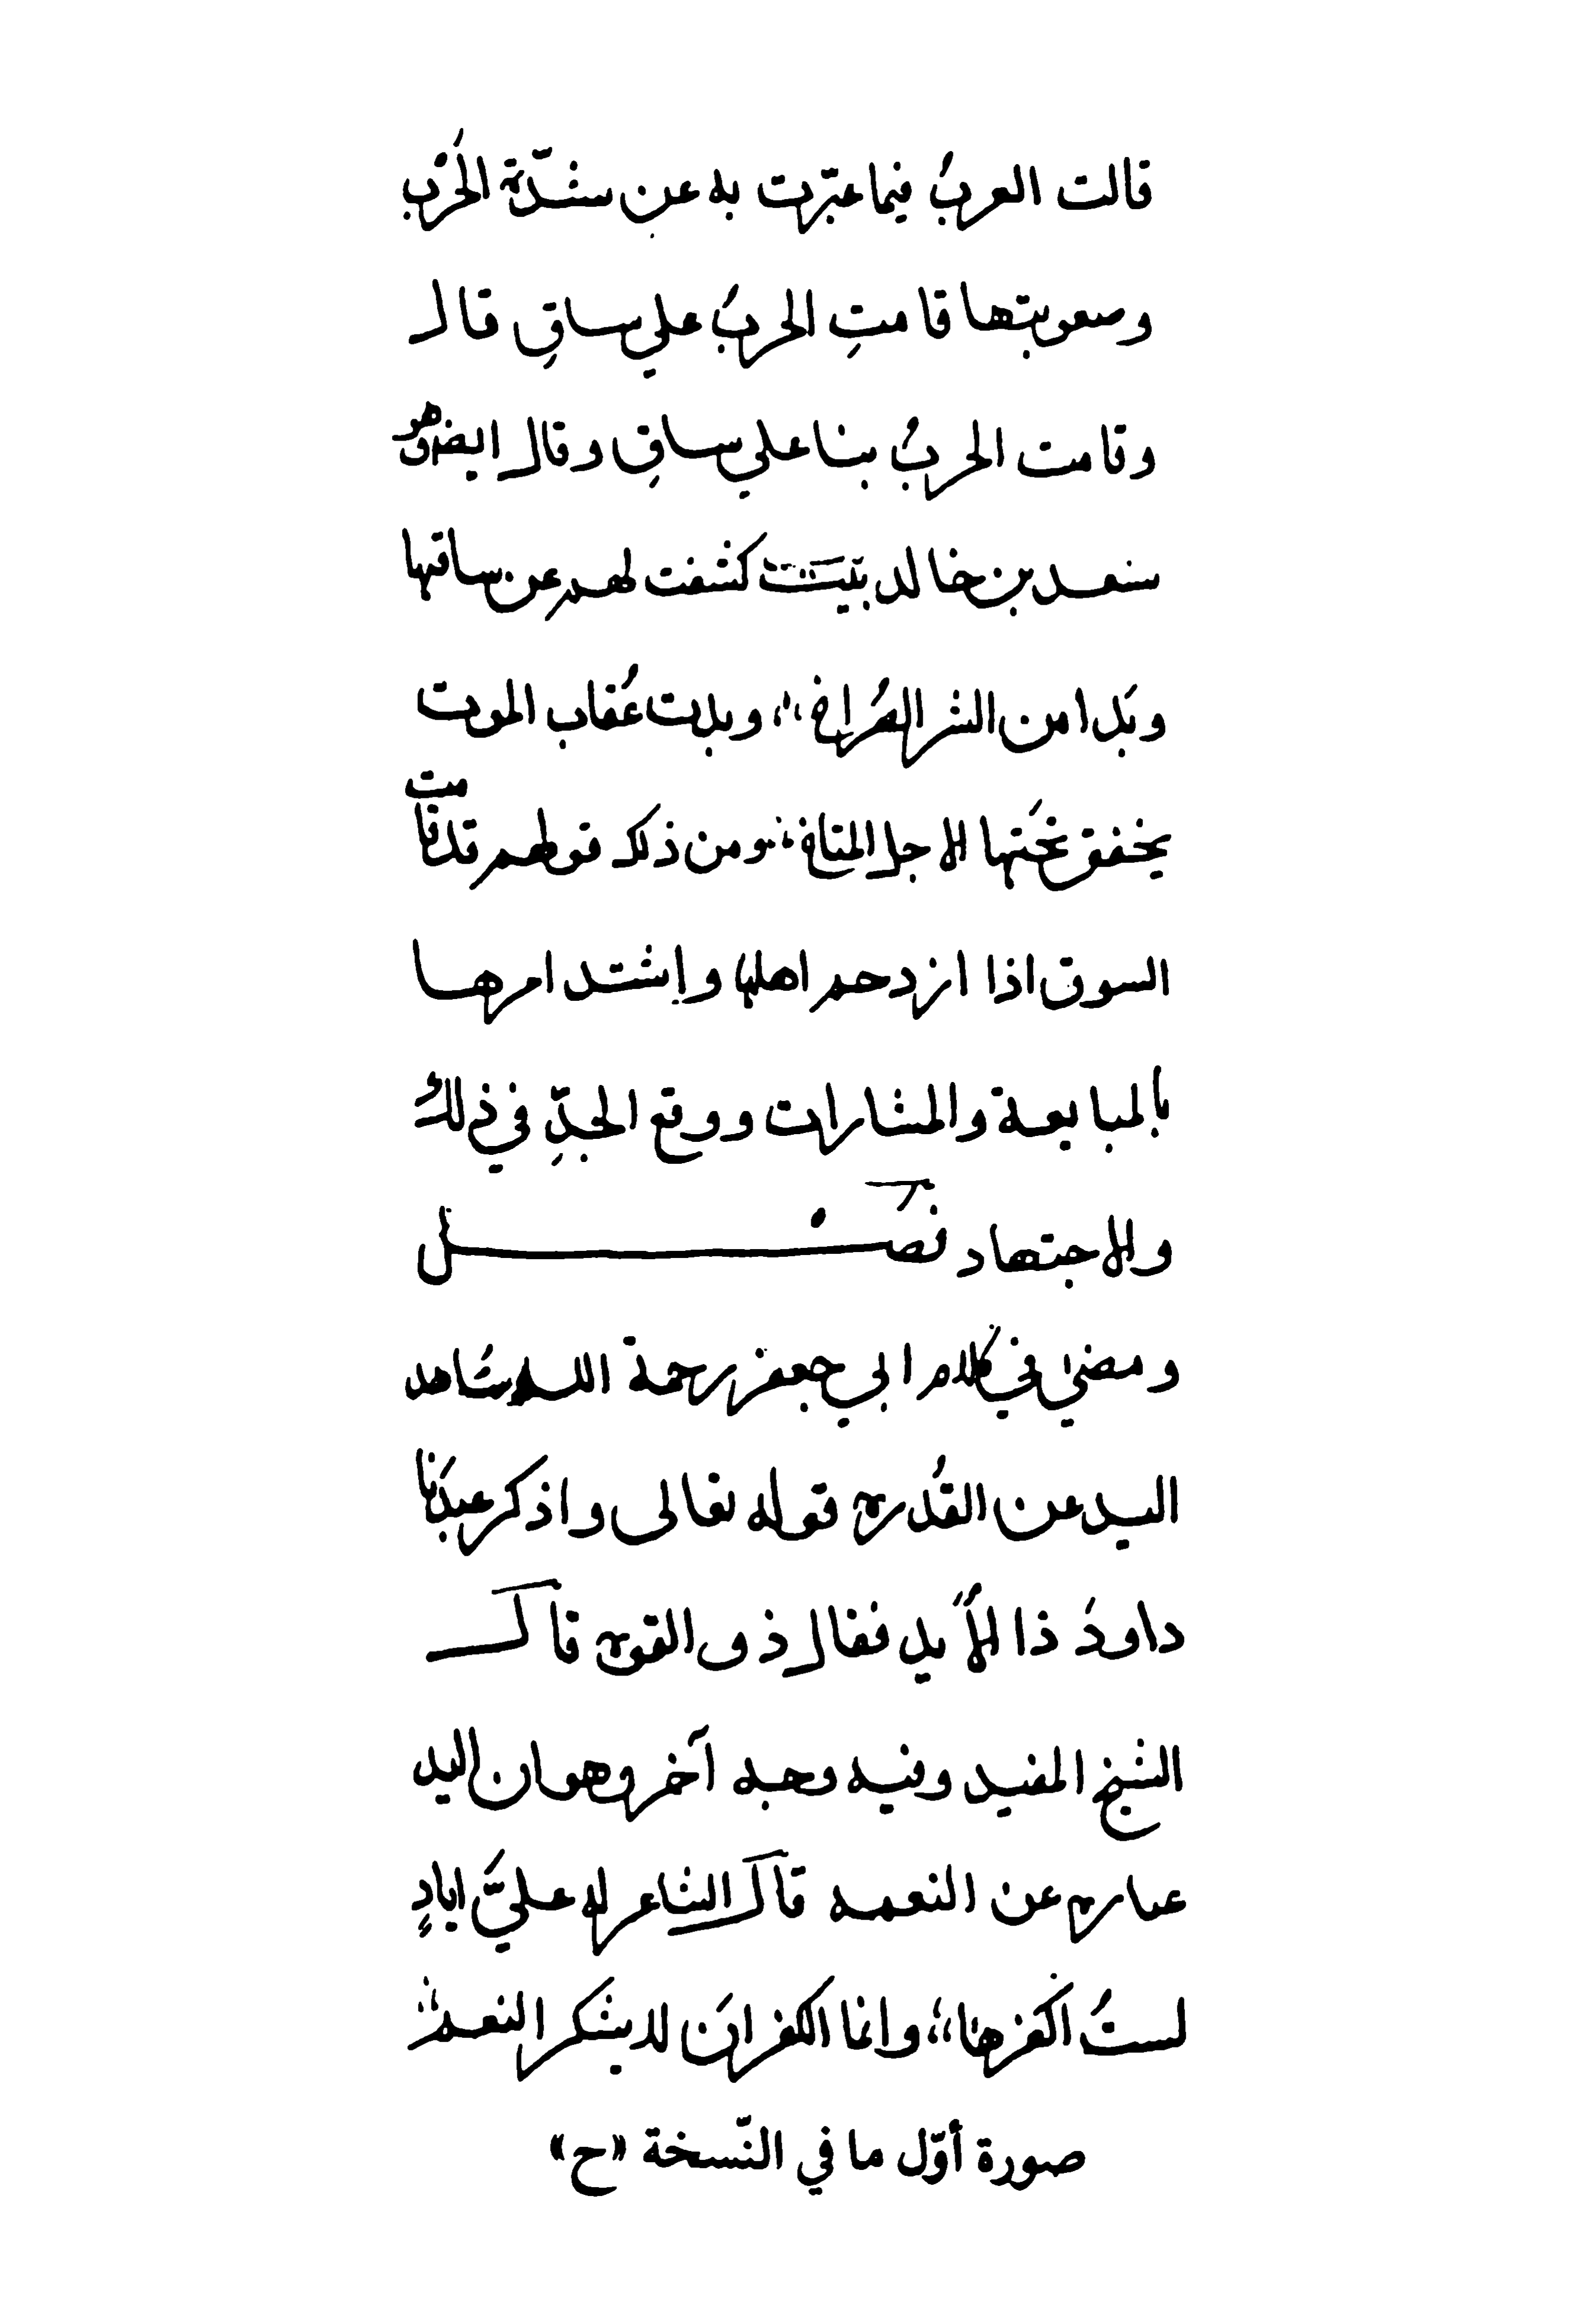 قالت العربُ فيما عبّرت به عن شدّة الحَرْب
وصعوبتها قامتِ الحربُ علي ساقٍ قال
وقامت الحربُ بنا علي ساقٍ وقال ايضا وهو
سعد بن خالد بَيَت كشفت لهم عن ساقها
وبَدا من الشر الصُراخ ؛ وبدت عُقاب الموت
يخفق تحَتها الاجل المتاخ ؛ ومن ذلك قولهم قد قامت
السوق اذا ازدحم اهلها واشتد امرها
بالمبايعة والمشارات ووقع الجدِّ في ذلك
والاجتهاد فصَْل
ومضي في كلام ابي جعفر رحمة الله شاهد
اليد عن القُدرة قوله تعالى واذكر عبدَنا
داودَ ذا الأَيد فقال ذو القوة قال
الشيخ المفيد وفيه وجه آخر وهو ان اليد
عبارة عن النعمه قال الشاعر له عليَّ ايادٍ
لستُ اكفرها ؛؛ وانما الكفر ان لا يشكر النعم
صورة أوّل ما في النّسخة «ح»